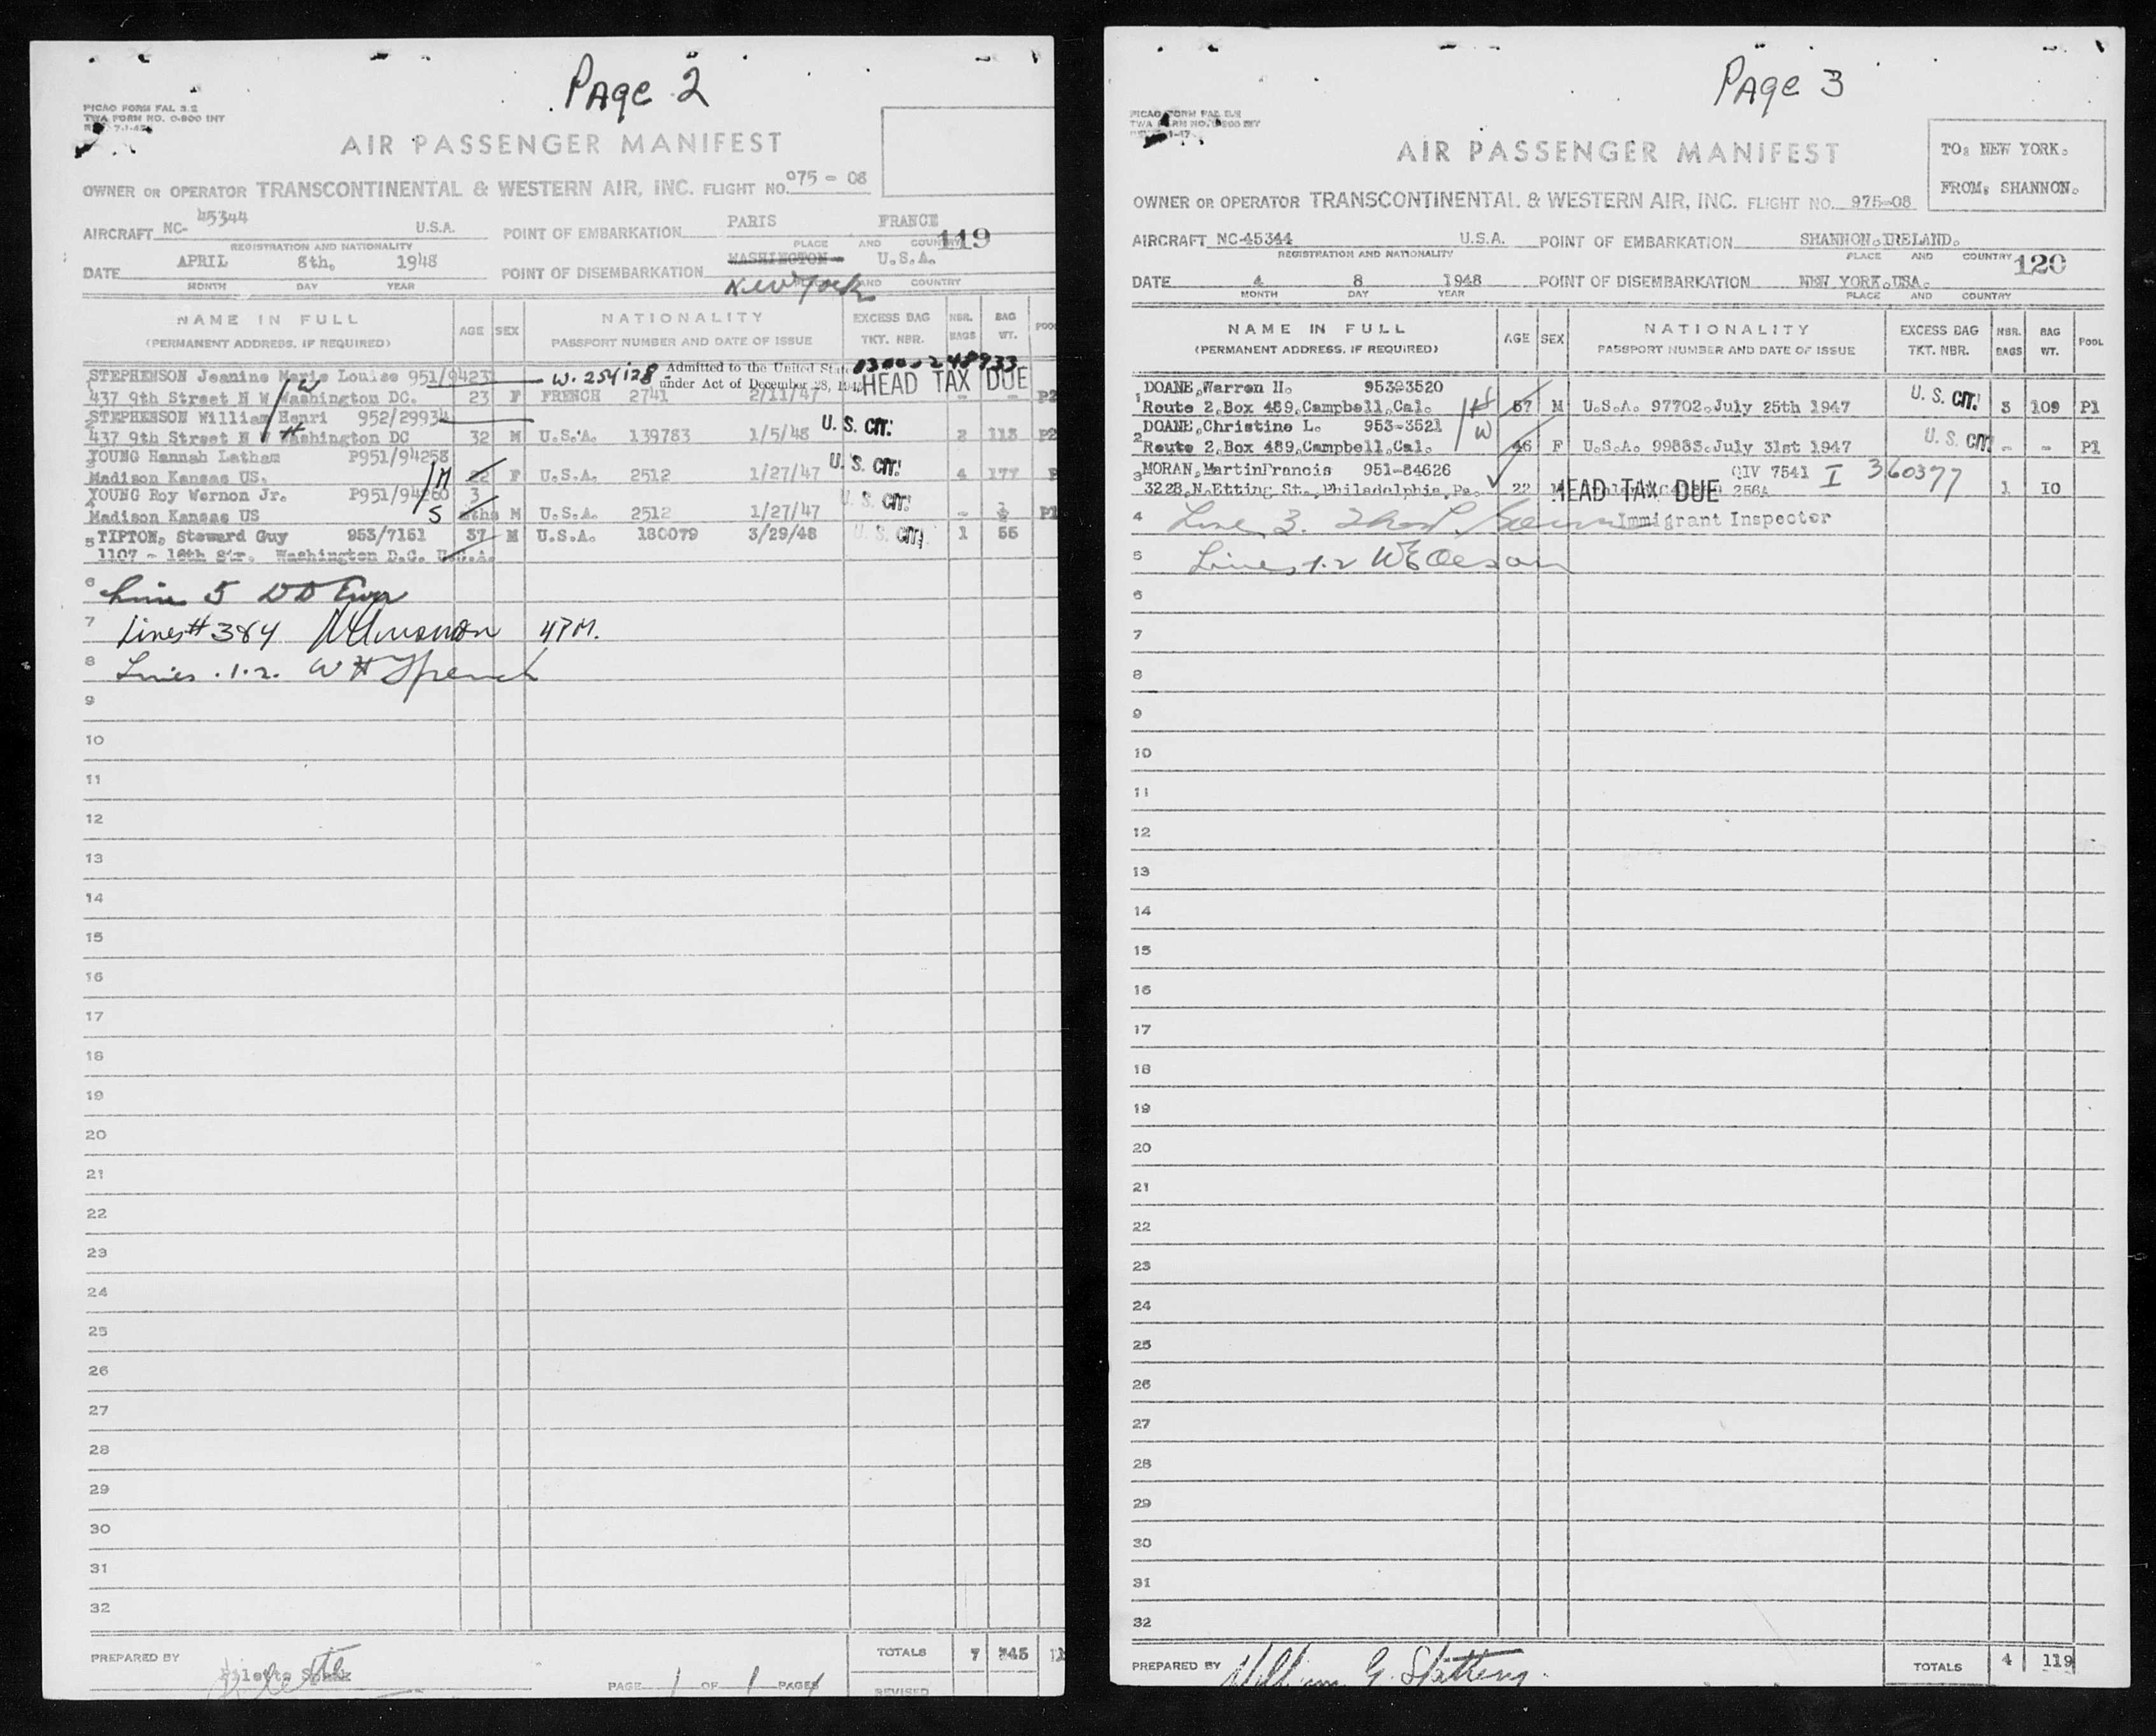 Page 2
PICAO FORM FAL 3.2
TWA FORM NO. O-800 INT
AIR PASSENGER MANIFEST
OWNER OR OPERATOR TRANSCONTINENTAL & WESTERN AIR, INC. FLIGHT NO. 975 - 08
AIRCRAFT NC- 45344 U.S.A. POINT OF EMBARKATION PARIS FRANCE
REGISTRATION AND NATIONALITY PLACE AND COUNTRY 119
DATE APRIL 8th, 1948 POINT OF DISEMBARKATION WASHINGTON U.S.A.
MONTH DAY YEAR New York AND COUNTRY
NAME IN FULL AGE SEX NATIONALITY EXCESS BAG NBR. BAG POOL
(PERMANENT ADDRESS, IF REQUIRED) PASSPORT NUMBER AND DATE OF ISSUE TKT. NBR. BAGS WT.
STEPHENSON Jeanine Marie Louise 951/9423 W. 254128 Admitted to the United State
under Act of December 28, HEAD TAX DUE
437 9th Street N W Washington DC. 23 F FRENCH 2741 2/11/47 - - P2
W
STEPHENSON William Henri 952/29934 U. S. CIT.
437 9th Street N W Washington DC 32 M U.S.A. 139783 1/5/48 2 113 P2
H
YOUNG Hannah Latham P951/94258 U. S. CIT.
Madison Kansas US. 22 F U.S.A. 2512 1/27/47 4 177 P
M
YOUNG Roy Wernon Jr. P951/94260 3 U. S. CIT.
Madison Kansas US mths M U.S.A. 2512 1/27/47 - P1
S
5 TIPTON, Steward Guy 953/7151 37 M U.S.A. 180079 3/29/48 U. S. CIT. 1 55
1107 - 16th Str. Washington D.C. U.S.A.
6 Line 5
7 Lines # 3&4 4PM.
8 Lines .1.2. W H French
9
10
11
12
13
14
15
16
17
18
19
20
21
22
23
24
25
26
27
28
29
30
31
32
PREPARED BY TOTALS 7 345
PAGE 1 OF 1 PAGES REVISED
Page 3
PICAO FORM FAL
TWA FORM NO. INT
AIR PASSENGER MANIFEST
TO: NEW YORK.
FROM: SHANNON.
OWNER OR OPERATOR TRANSCONTINENTAL & WESTERN AIR, INC. FLIGHT NO. 975-08
AIRCRAFT NC-45344 U.S.A. POINT OF EMBARKATION SHANNON.IRELAND.
REGISTRATION AND NATIONALITY PLACE AND COUNTRY 120
DATE 4 8 1948 POINT OF DISEMBARKATION NEW YORK.USA.
MONTH DAY YEAR PLACE AND COUNTRY
NAME IN FULL AGE SEX NATIONALITY EXCESS BAG NBR. BAG POOL
(PERMANENT ADDRESS, IF REQUIRED) PASSPORT NUMBER AND DATE OF ISSUE TKT. NBR. BAGS WT.
DOANE,Warren H. 95323520 U. S. CIT.
1 Route 2,Box 489,Campbell,Cal. H 57 M U.S.A. 97702.July 25th 1947 3 109 P1
DOANE,Christine L. 953-3521 U. S. CIT
2 Route 2,Box 489,Campbell,Cal. W 46 F U.S.A. 99883.July 31st 1947 - - P1
3 MORAN,MartinFrancis 951-84626 QIV 7541 I 360377
3228,N.Etting St.,Philadelphia,Pa. 22 M HEAD TAX DUE 256A 1 10
4 Line 3. Immigrant Inspector
5 Lines 1.2
6
7
8
9
10
11
12
13
14
15
16
17
18
19
20
21
22
23
24
25
26
27
28
29
30
31
32
PREPARED BY William G. TOTALS 4 119